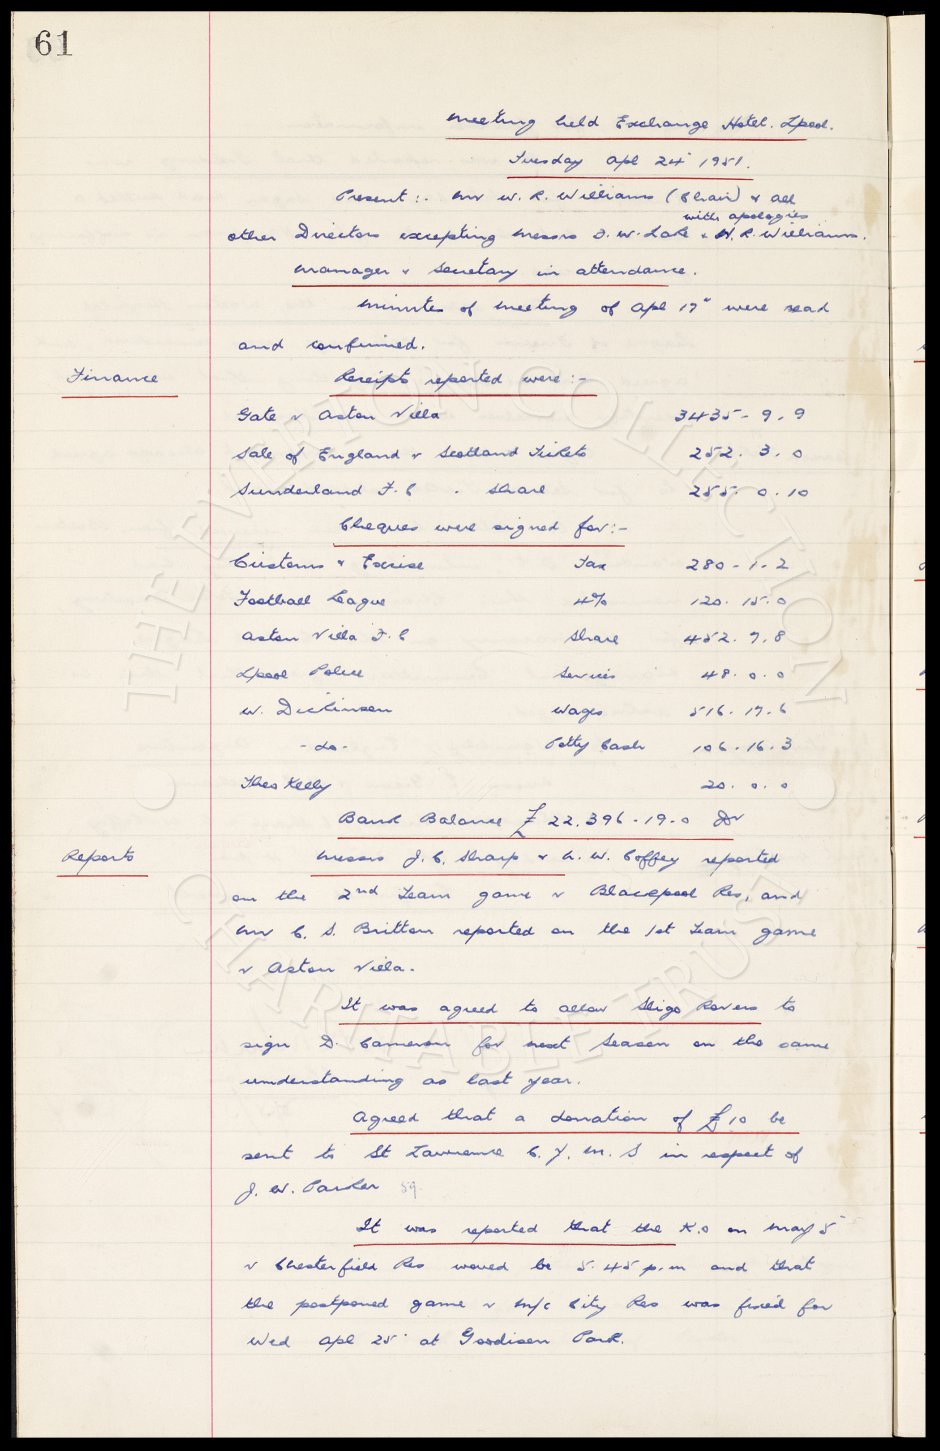 61
Meeting held Exchange Hotel. Lpool.
Tuesday Apl 24" 1951.
Present:- Mr W. R. Williams (Chair) & all
with apologies
other Directors excepting Messrs F. W. Lake & N. R. Williams.
Manager & Secretary in attendance.
Minutes of meeting of Apl 17" were read
and confirmed.
Finance
Receipts reported were:-
Gate v Aston Villa 3435 - 9. 9
Sale of England v Scotland Tickets 252. 3. 0
Sunderland F.C. Share 255. 0. 10
Cheques were signed for:-
Customs & Excise Tax 280 - 1. 2
Football League 4% 120. 15. 0
Aston Villa F.C Share 452. 7. 8
Lpool Police Services 48. 0. 0
W. Dickinson Wages 516. 17. 6
- do - Petty Cash 106. 16. 3
Theo Kelly 20. 0. 0
Bank Balance £22,396 - 19. 0 Dr
Reports
Messrs J. C. Sharp & W. Coffey reported
on the 2nd Team game v Blackpool Res, and
Mr C. S. Britton reported on the 1st Team game
v Aston Villa.
It was agreed to allow Sligo Rovers to
sign D. Cameron for next season on the same
understanding as last year.
Agreed that a donation of £10 be
sent to St Lawrence C. Y. M. S in respect of
J. W. Parker 59
It was reported that the K.O on May 5"
v Chesterfield Res would be 5.45 p.m and that
the postponed game v M/c City Res was fixed for
Wed Apl 25" at Goodison Park.
THE EVERTON COLLECTION
CHARITABLE TRUST